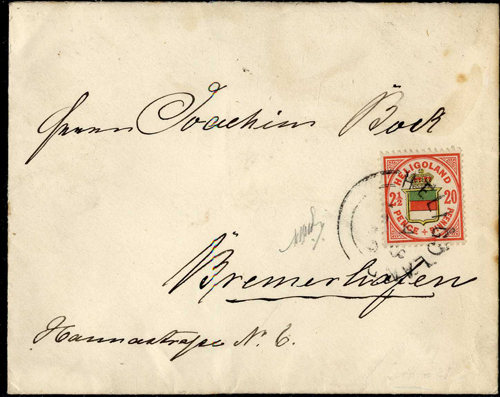 Herrn Joachim Bock
HELIGOLAND
2½ 20
PENCE PFENNIG
HELIGOLAND
Bremerhafen
Hannastrasse N. 6.